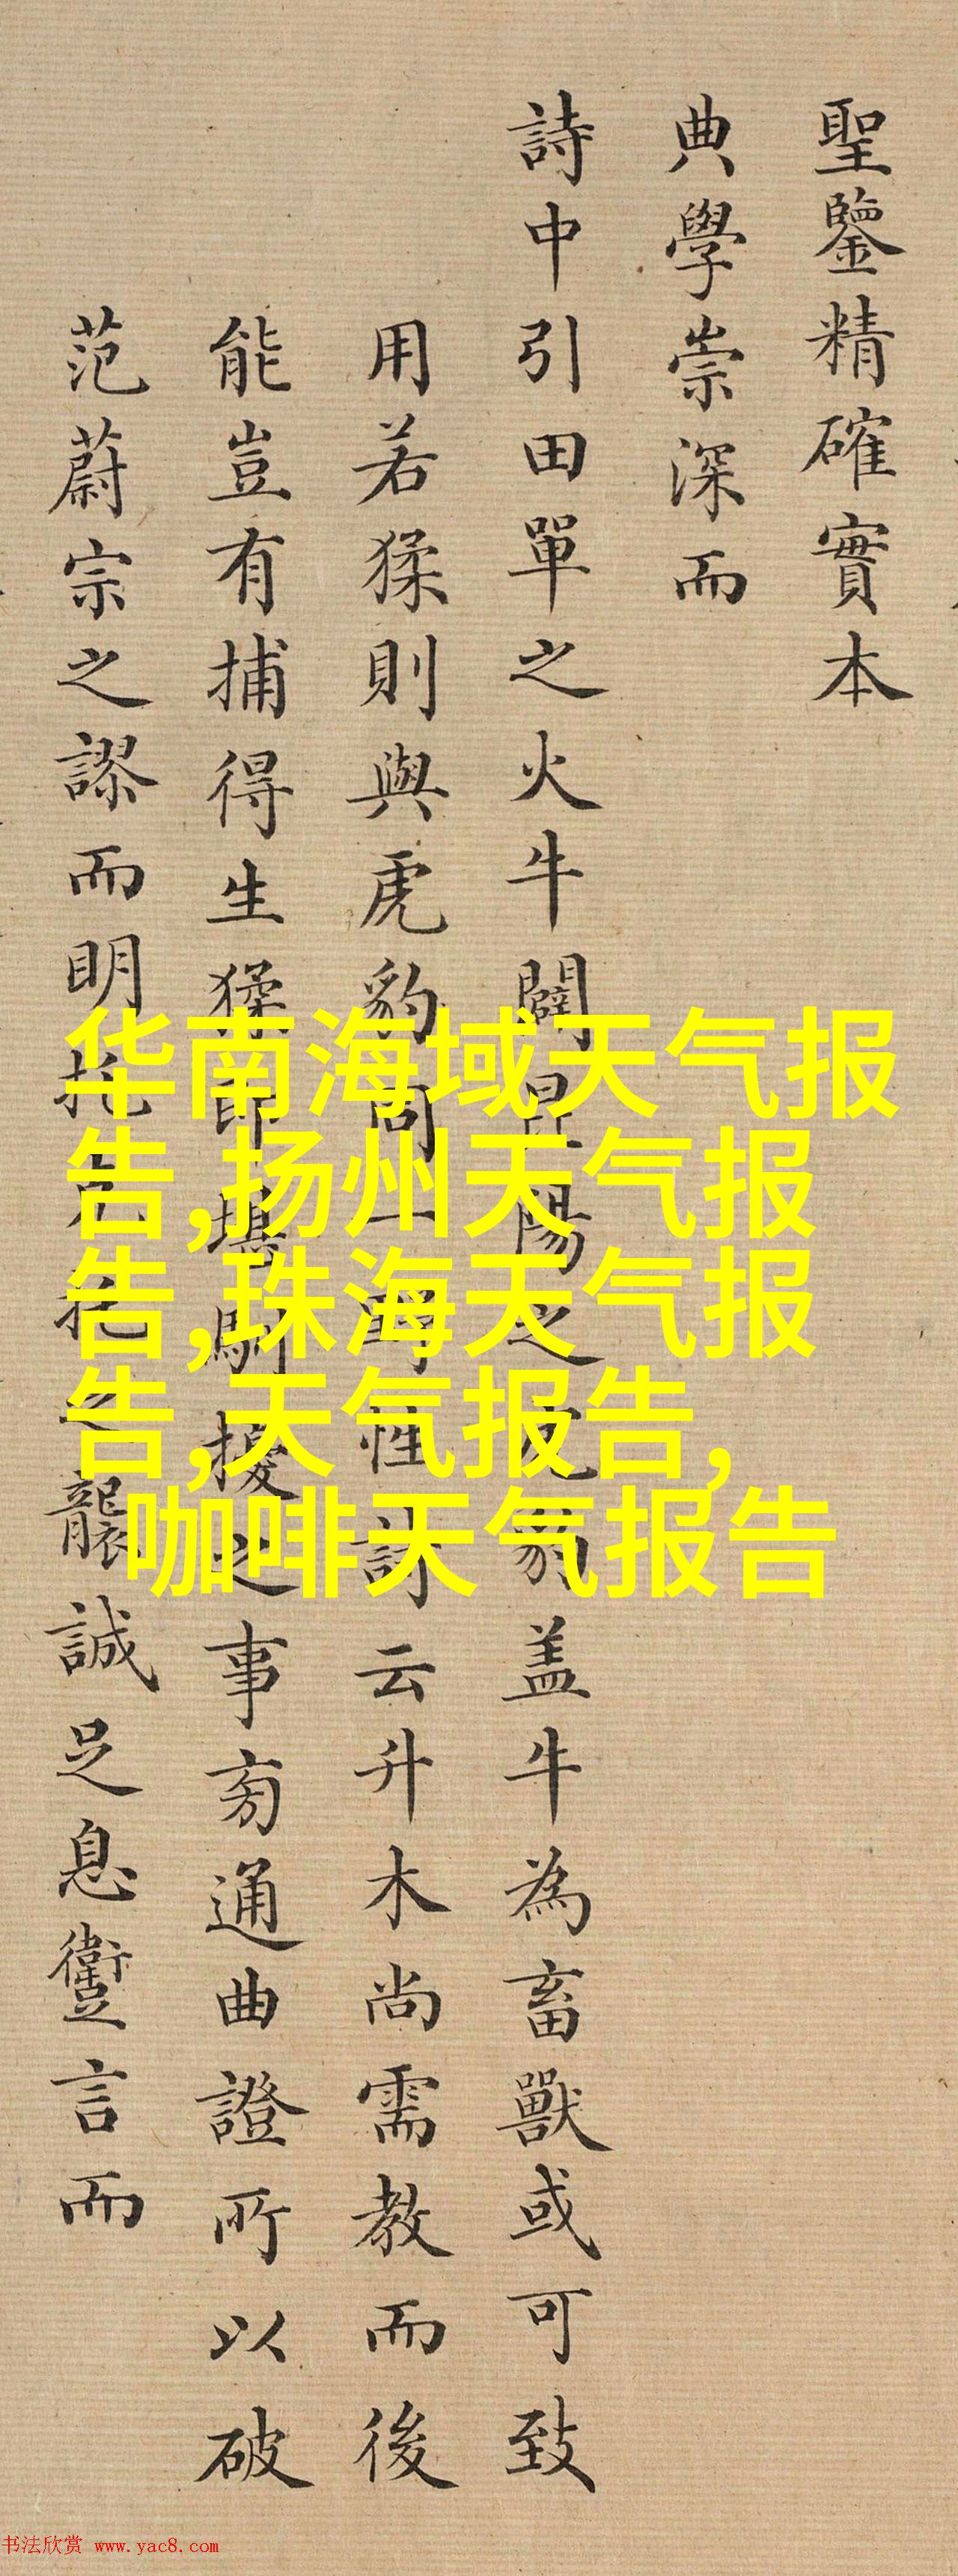 聖鑒精確實本
典學崇深而
詩中引田單之火牛闢昆陽之虎豹蓋牛為畜獸或可致
用若猱則與虎豹同一野性詩云升木尚需教而後
能豈有捕得生猱即堪馴擾之事旁通曲證所以破
范蔚宗之謬而明托之襲誠足息讆言而
华南海域天气报
告,扬州天气报
告,珠海天气报
告,天气报告,
咖啡天气报告
书法欣赏 www.yac8.com